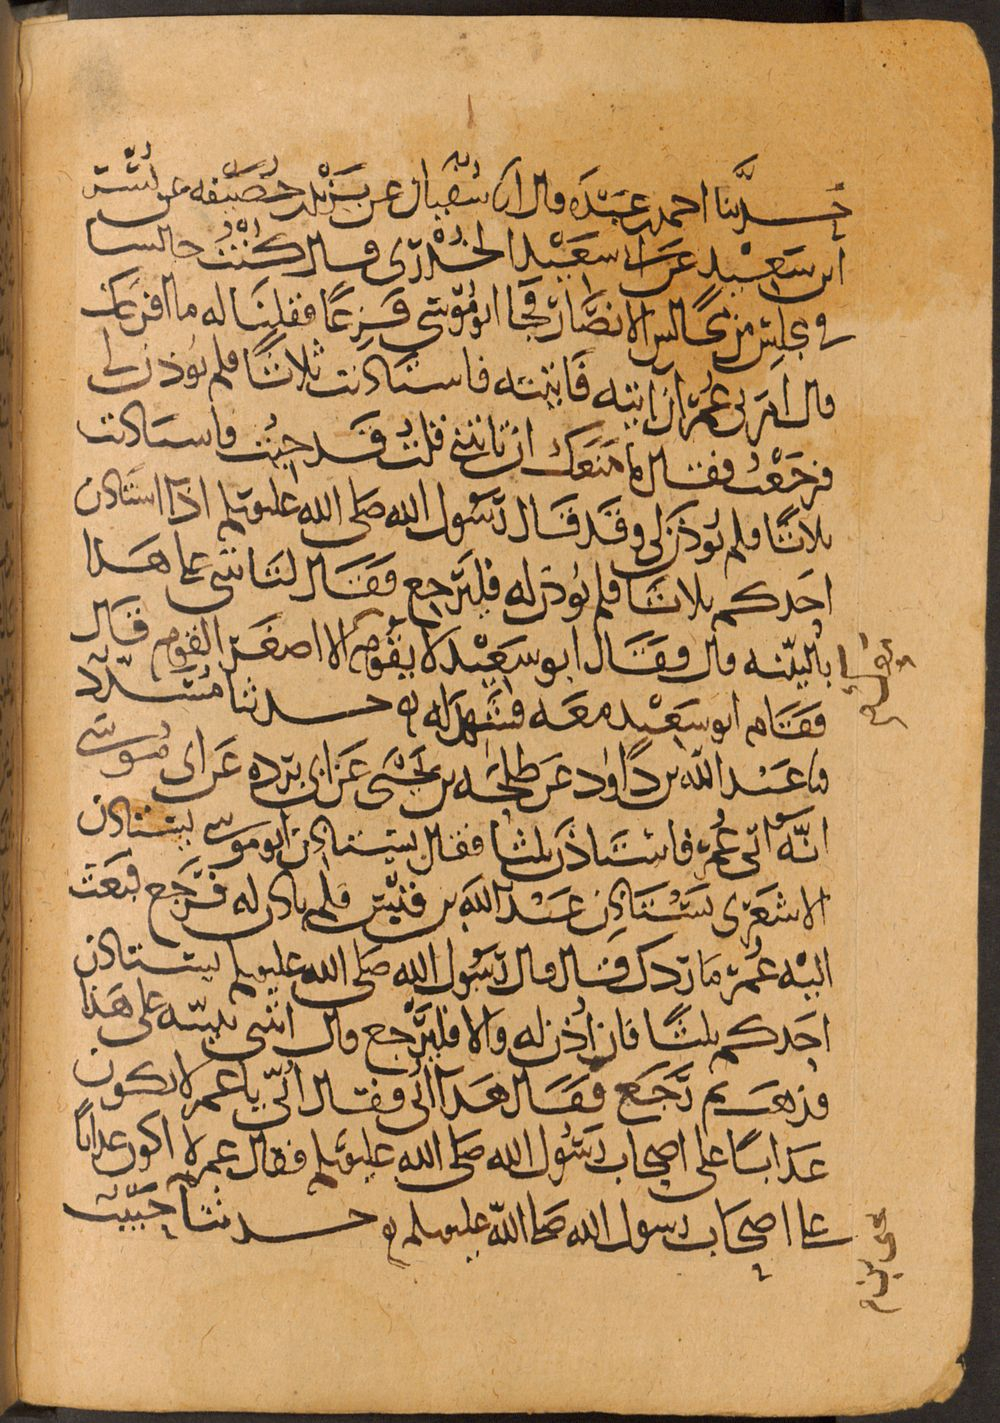 حدثنا احمد بن عبدة قال انا سفيان عن يزيد بن خصيفه عن بسر
ابن سعيد عن ابى سعيد الخدرى قال كنت جالسا
فى مجلس من مجالس الانصار فجا ابو موسى فزعا فقلنا له ما افزعك
قال امرنى عمر ان اتيه فاتيته فاستاذنت ثلاثا فلم يؤذن لى
فرجعت فقال ما منعك ان تاتينى قلت قد جيت فاستاذنت
ثلاثا فلم يؤذن لى وقد قال رسول الله صلى الله عليه وسلم اذا استاذن
احدكم ثلاثا فلم يؤذن له فليرجع فقال لتاتنى على هذا
بالبينه قال فقال ابو سعيد لا يقوم الا اصغر القوم قال
فقام ابو سعيد معه فشهد له حدثنا مسدد
نا عبد الله بن داود عن طلحه بن يحيى عن ابى برده عن ابى موسى
انه اتى عمر فاستاذن ثلثا فقال يستاذن ابو موسى يستاذن
الاشعرى يستاذن عبد الله بن قيس فلم ياذن له فرجع فبعث
اليه عمر ما ردك قال قال رسول الله صلى الله عليه وسلم يستاذن
احدكم ثلثا فان اذن له والا فليرجع قال ائتنى ببينه على هذا
فذهب ثم رجع فقال هذا ابى فقال ابى يا عمر لا تكون
عذابا على اصحاب رسول الله صلى الله عليه وسلم فقال عمر لا اكون عذابا
على اصحاب رسول الله صلى الله عليه وسلم حدثنا يحيى بن حبيب